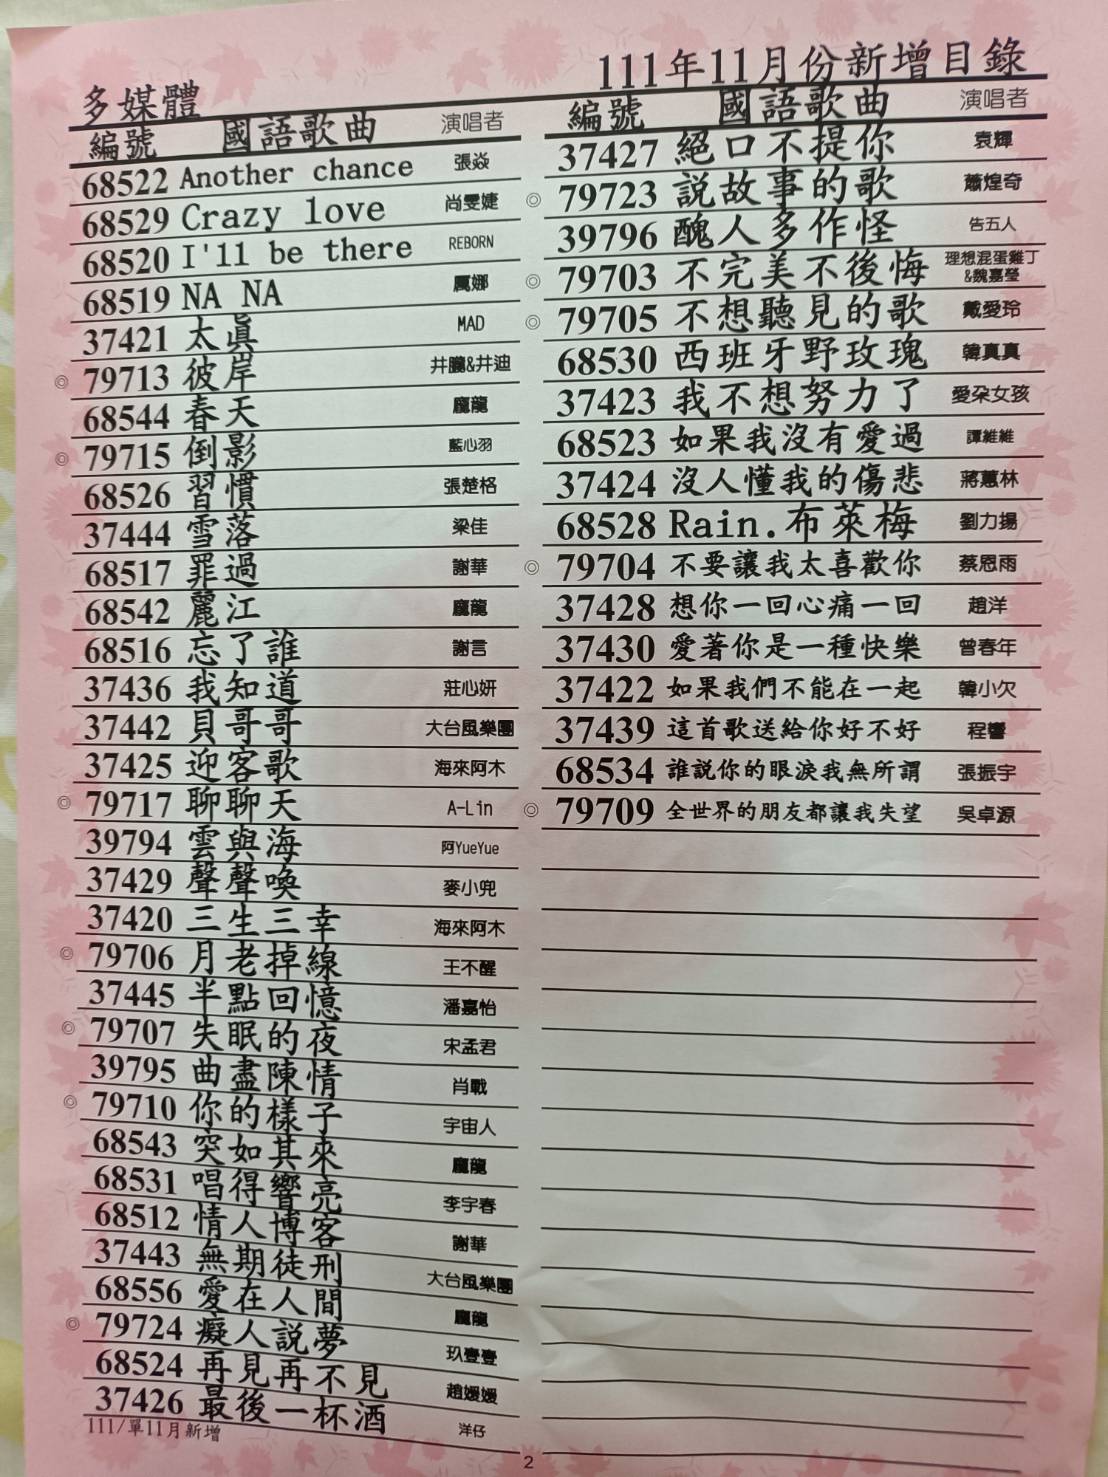 多媒體
111年11月份新增目錄
編號 國語歌曲 演唱者
68522 Another chance 張焱
68529 Crazy love 尚雯婕
68520 I'll be there REBORN
68519 NA NA 厲娜
37421 太眞 MAD
◎ 79713 彼岸 井朧&井迪
68544 春天 龐龍
◎ 79715 倒影 藍心羽
68526 習慣 張楚格
37444 雪落 梁佳
68517 罪過 謝華
68542 麗江 龐龍
68516 忘了誰 謝言
37436 我知道 莊心妍
37442 貝哥哥 大台風樂團
37425 迎客歌 海來阿木
◎ 79717 聊聊天 A-Lin
39794 雲與海 阿YueYue
37429 聲聲喚 麥小兜
37420 三生三幸 海來阿木
◎ 79706 月老掉線 王不醒
37445 半點回憶 潘嘉怡
◎ 79707 失眠的夜 宋孟君
39795 曲盡陳情 肖戰
◎ 79710 你的樣子 宇宙人
68543 突如其來 龐龍
68531 唱得響亮 李宇春
68512 情人博客 謝華
37443 無期徒刑 大台風樂團
68556 愛在人間 龐龍
◎ 79724 癡人說夢 玖壹壹
68524 再見再不見 趙媛媛
37426 最後一杯酒 洋仔
111/單11月新增
編號 國語歌曲 演唱者
37427 絕口不提你 袁輝
◎ 79723 說故事的歌 蕭煌奇
39796 醜人多作怪 告五人
◎ 79703 不完美不後悔 理想混蛋雞丁
&魏嘉瑩
◎ 79705 不想聽見的歌 戴愛玲
68530 西班牙野玫瑰 韓真真
37423 我不想努力了 愛朵女孩
68523 如果我沒有愛過 譚維維
37424 沒人懂我的傷悲 蔣蕙林
68528 Rain.布萊梅 劉力揚
◎ 79704 不要讓我太喜歡你 蔡恩雨
37428 想你一回心痛一回 趙洋
37430 愛著你是一種快樂 曾春年
37422 如果我們不能在一起 韓小欠
37439 這首歌送給你好不好 程響
68534 誰說你的眼淚我無所謂 張振宇
◎ 79709 全世界的朋友都讓我失望 吳卓源
2